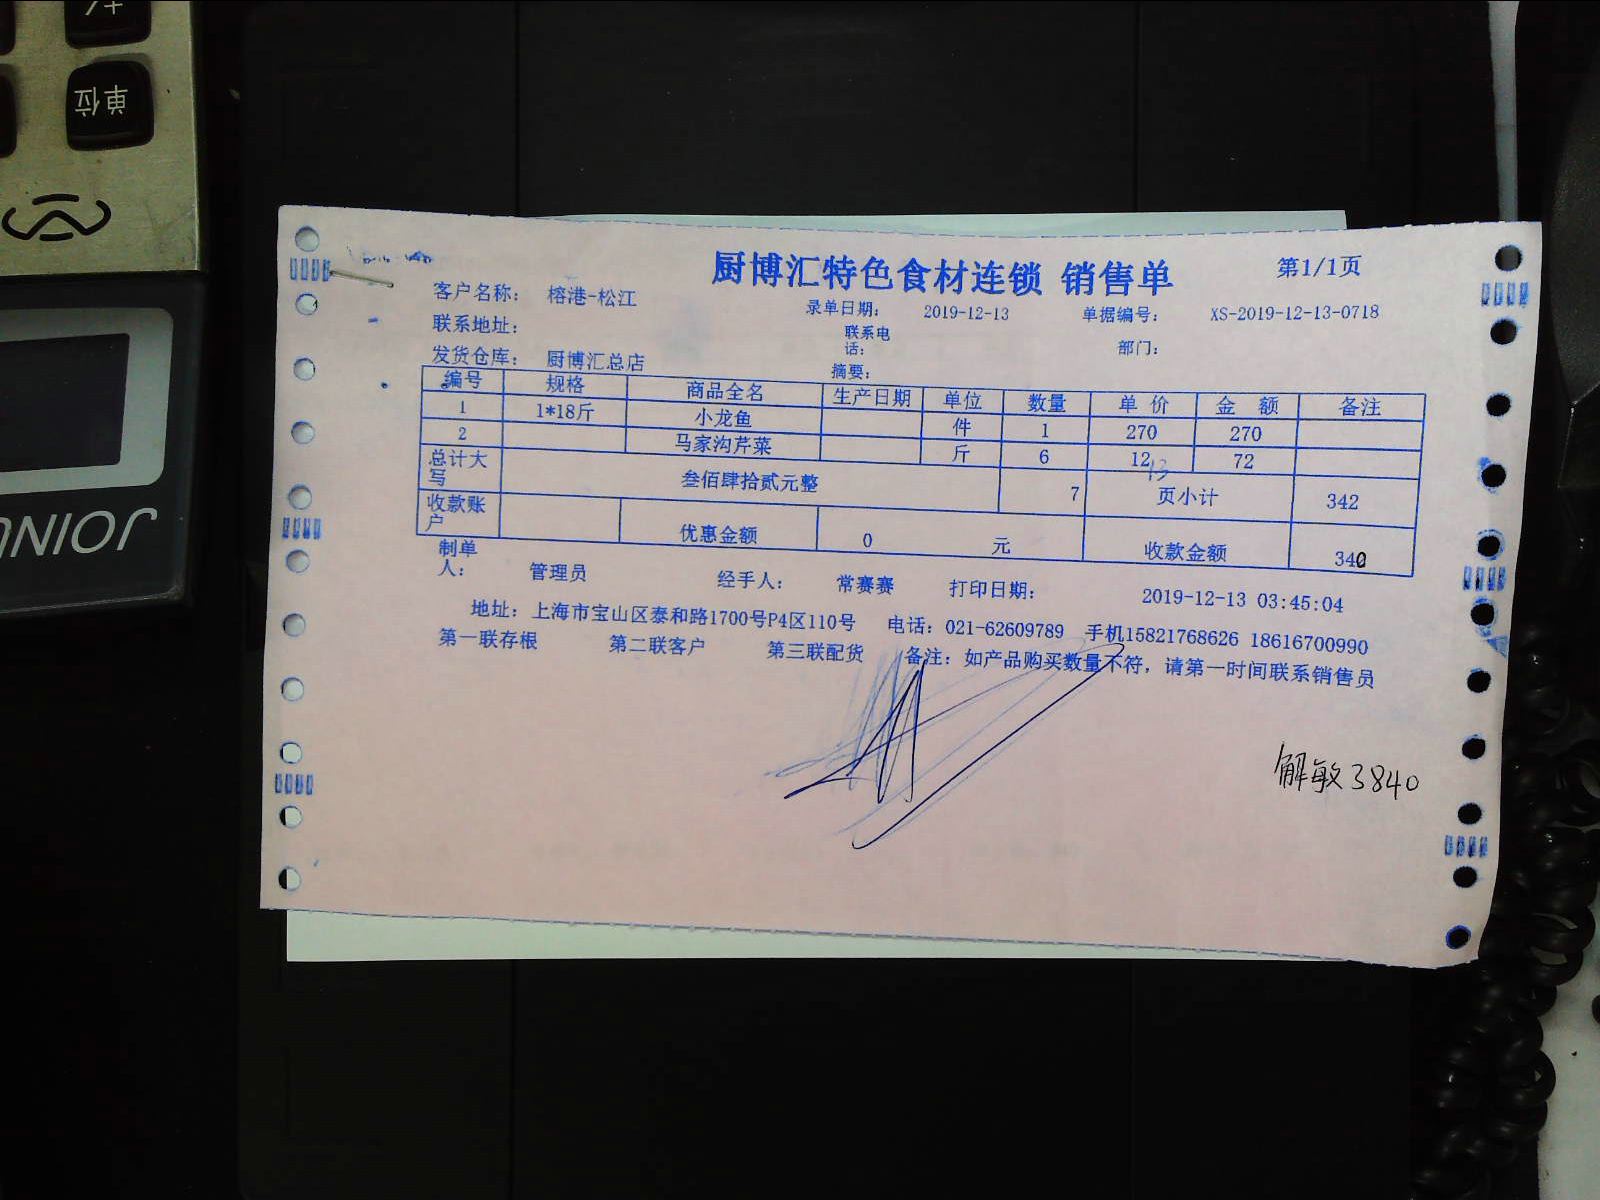 单位
JOINUS
厨博汇特色食材连锁 销售单
第1/1页
客户名称： 榕港-松江
录单日期： 2019-12-13
单据编号： XS-2019-12-13-0718
联系地址：
联系电话：
部门：
发货仓库： 厨博汇总店
摘要：
编号 规格 商品全名 生产日期 单位 数量 单 价 金 额 备注
1 1*18斤 小龙鱼 件 1 270 270
2 马家沟芹菜 斤 6 12 72
13
总计大写 叁佰肆拾贰元整 7 页小计 342
收款账户 优惠金额 0 元 收款金额 340
制单人： 管理员 经手人： 常赛赛 打印日期： 2019-12-13 03:45:04
地址：上海市宝山区泰和路1700号P4区110号 电话：021-62609789 手机15821768626 18616700990
第一联存根 第二联客户 第三联配货 备注：如产品购买数量不符，请第一时间联系销售员
解敏3840